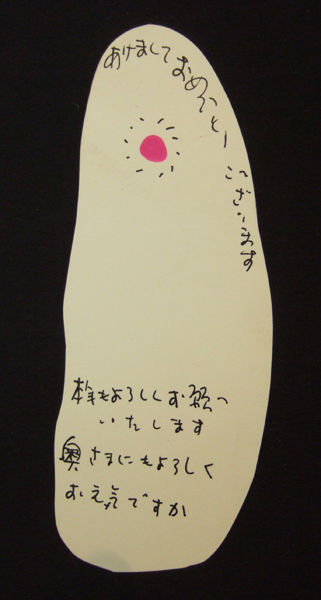 あけまして おめでとう ございます
本年もよろしくお願い
いたします
奥さまにもよろしく
お元気ですか